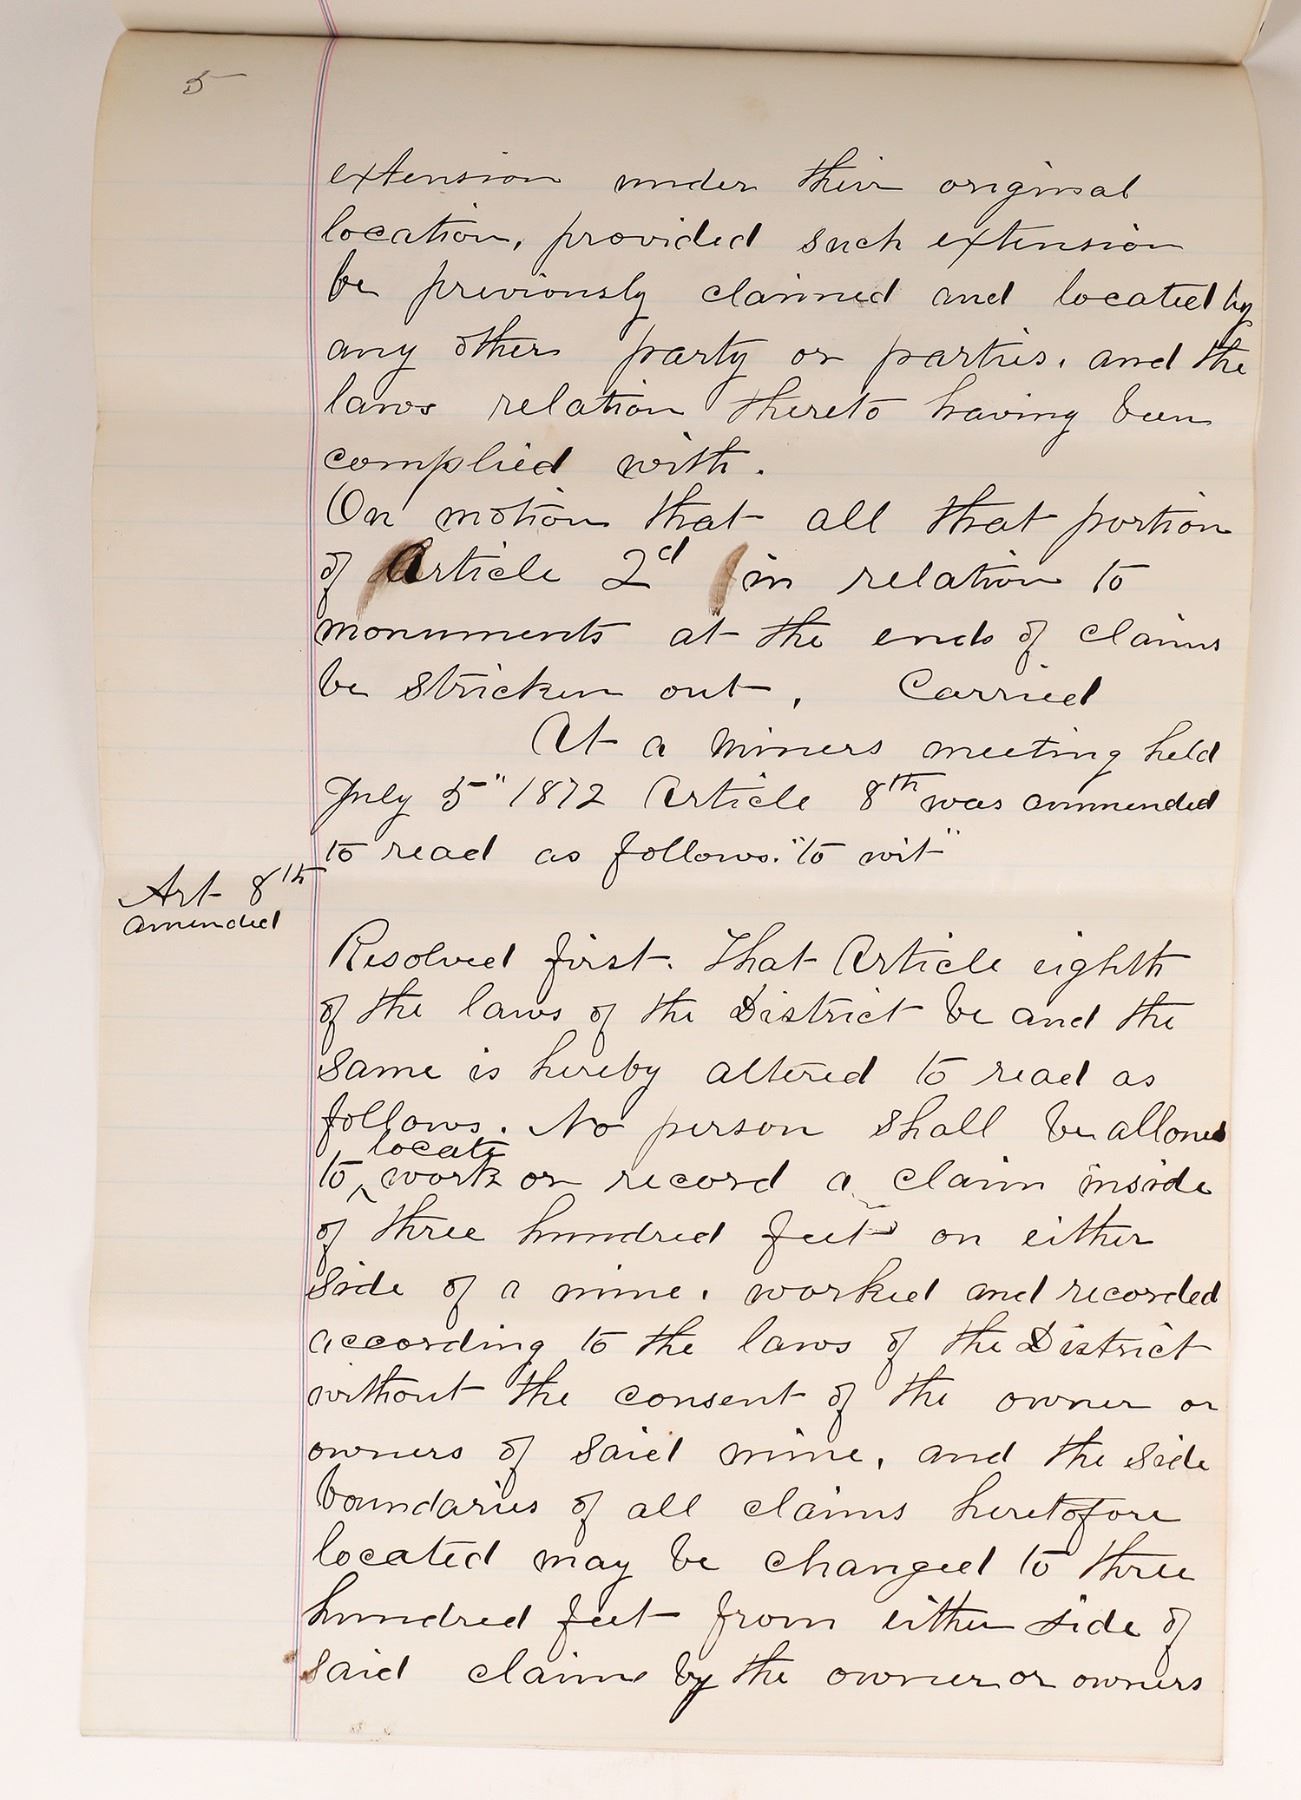 5
extension under their original
location, provided such extension
be previously claimed and located by
any other party or parties. and the
laws relation thereto having been
complied with.
On motion that all that portion
of Article 2d in relation to
monuments at the ends of claims
be stricken out, Carried
At a miners meeting held
July 5" 1872 Article 8th was ammended
to read as follows. "to wit"
Art 8th
amended
Resolved first. That Article eighth
of the laws of the District be and the
same is hereby altered to read as
follows. No person shall be allowed
locate
to ^ work or record a claim inside
of three hundred feet on either
side of a mine. worked and recorded
according to the laws of the District
without the consent of the owner or
owners of said mine, and the side
boundaries of all claims heretofore
located may be changed to three
hundred feet from either side of
said claims by the owner or owners